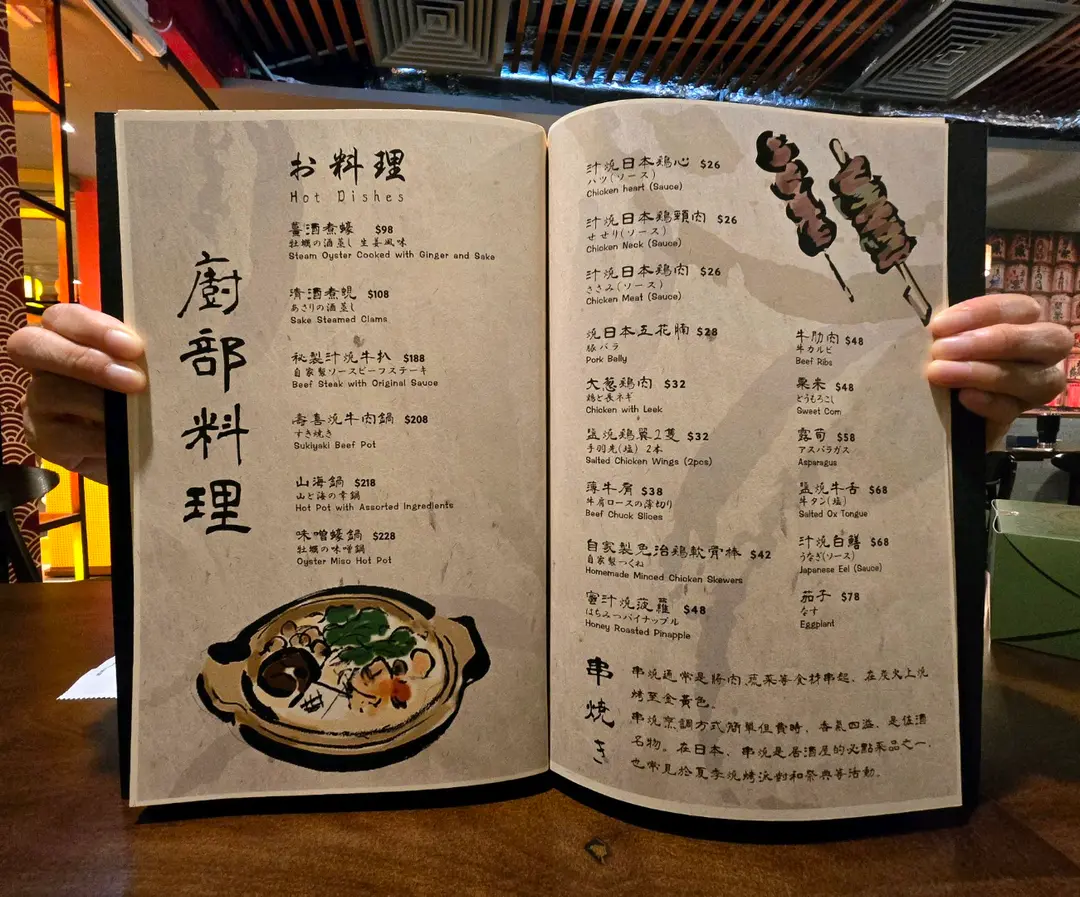 廚部料理
お料理
Hot Dishes
薑酒煮蠔 $98
牡蠣の酒蒸し 生姜風味
Steam Oyster Cooked with Ginger and Sake
清酒煮蜆 $108
あさりの酒蒸し
Sake Steamed Clams
秘製汁燒牛扒 $188
自家製ソースビーフステーキ
Beef Steak with Original Sauce
壽喜燒牛肉鍋 $208
すき焼き
Sukiyaki Beef Pot
山海鍋 $218
山と海の幸鍋
Hot Pot with Assorted Ingredients
味噌蠔鍋 $228
牡蠣の味噌鍋
Oyster Miso Hot Pot
汁燒日本鷄心 $26
ハツ(ソース)
Chicken heart (Sauce)
汁燒日本鷄頸肉 $26
せせり(ソース)
Chicken Neck (Sauce)
汁燒日本鷄肉 $26
ささみ(ソース)
Chicken Meat (Sauce)
燒日本五花腩 $28
豚バラ
Pork Belly
大葱鷄肉 $32
鶏と長ネギ
Chicken with Leek
鹽燒鷄翼2隻 $32
手羽先(塩) 2本
Salted Chicken Wings (2pcs)
薄牛肩 $38
牛肩ロースの薄切り
Beef Chuck Slices
自家製免治鷄軟骨棒 $42
自家製つくね
Homemade Minced Chicken Skewers
蜜汁燒菠蘿 $48
はちみつパイナップル
Honey Roasted Pinapple
牛肋肉 $48
牛カルビ
Beef Ribs
粟米 $48
とうもろこし
Sweet Corn
露荀 $58
アスパラガス
Asparagus
鹽燒牛舌 $68
牛タン(塩)
Salted Ox Tongue
汁燒白鱔 $68
うなぎ(ソース)
Japanese Eel (Sauce)
茄子 $78
なす
Eggplant
串焼き
串燒通常是將肉、蔬菜等食材串起、在炭火上燒
烤至金黃色。
串燒烹調方式簡單但費時、香氣四溢、是佐酒
名物。在日本、串燒是居酒屋的必點菜品之一、
也常見於夏季燒烤派對和祭典等活動。